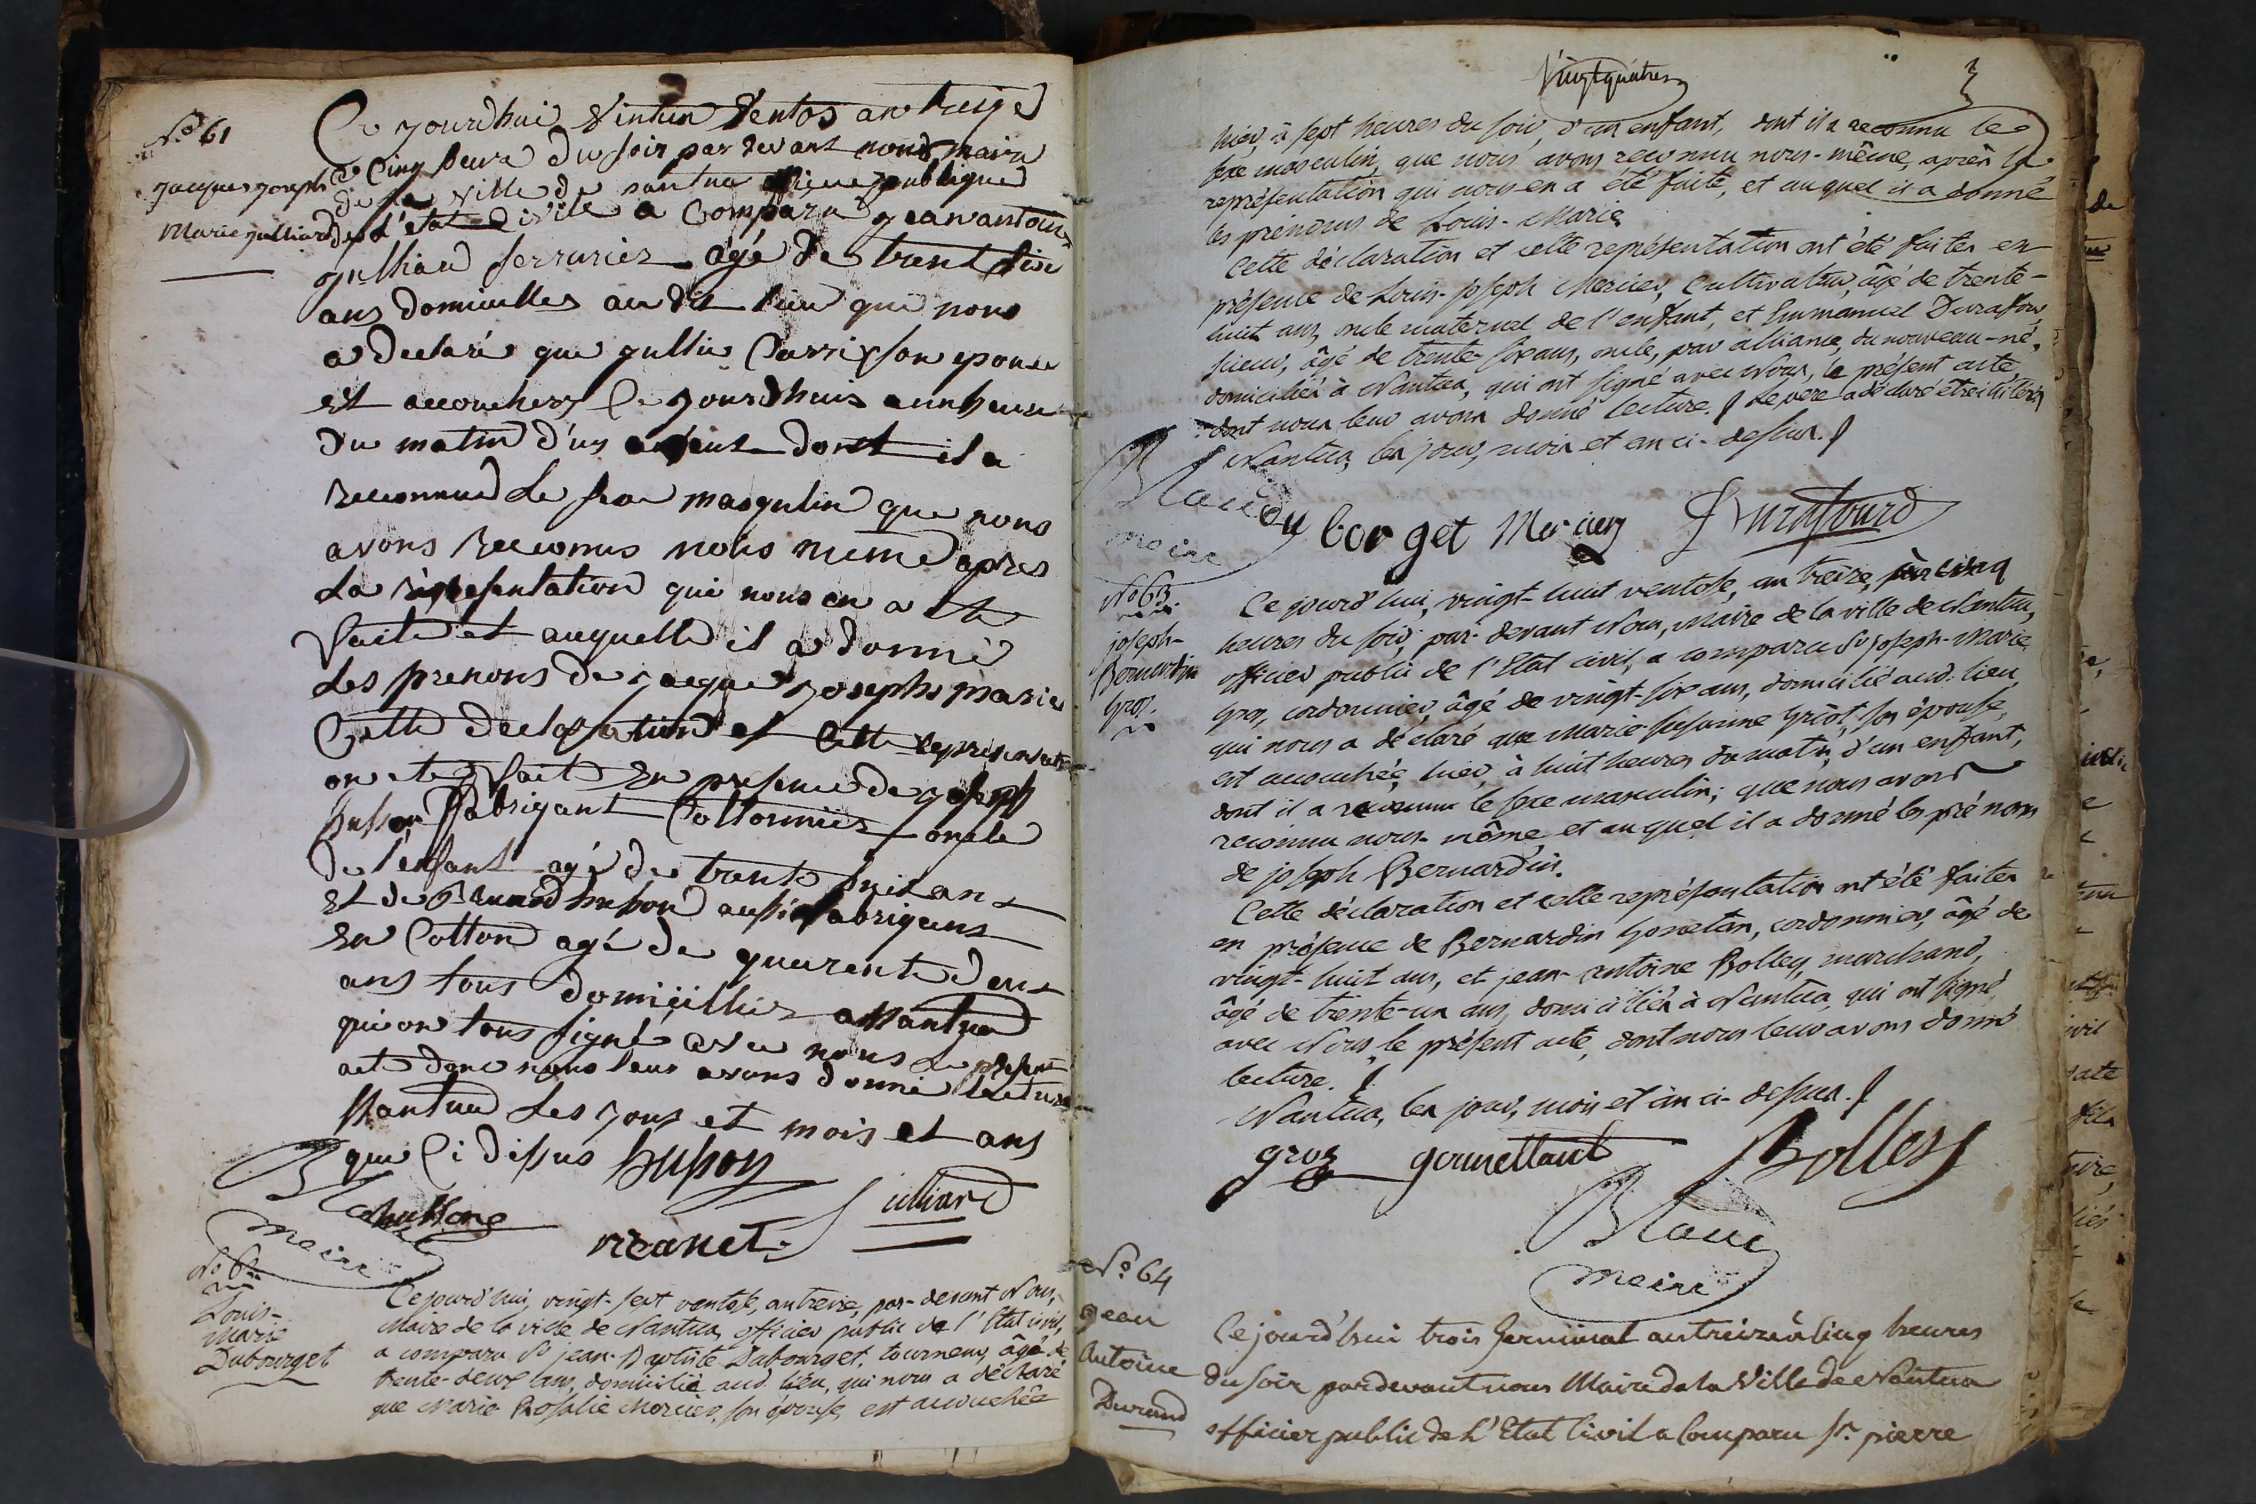 No 61
jacques joseph
marie julliard
Ce jourdhui vintun Ventos an treize
a Cinq heure du soir par devant nous maire
de la ville de nantua officier publique
de l'état Civile a Comparu jean antoine
julliard serrurier agé de trent six
ans domicilies au dit lieu qui nous
a declaré que jullie Carrix son epouse
est accouchez Ce jourdhuis a un heure
du matin d'un enfent dont il a
reconnud Le sexe masqulin que nous
avons reconnus nous meme apres
La representation qui nous en a ete
faite et auquelle il a donné
Les prenons de jacque joseph marie
Cette declaration et Cette representati
on ete fait En presence de joseph
husson fabriquant Cottonnier oncle
de l'enfant agé de trente huit ans
Et de husson aussi fabriquens
En Cotton agé de quarente deux
ans tous domicillier a Nantua
qui on tous signé avec nous Le present
acte donc nous leur avons donné lecture
Nantua Les jour et mois et ans
que Ci dessus husson
Blanc
maire
hussone vizanet julliard
No 62
Louis-
Marie
Dubourget
Cejourd'hui, vingt-sept ventose, an treize, par-devant Nous,
Maire de la ville de Nantua, officier public de l'Etat civil,
a comparu Sr jean-Baptiste Dubourget, tourneur, âgé de
trente-deux ans, domicilié aud. lieu, qui nous a déclaré
que Marie Rosalie Mercier, son épouse, est accouchée
Vingtquatre
hier, à sept heures du soir, d'un enfant, dont il a reconnu le
sexe masculin, que nous avons reconnu nous-même, après la
représentation qui nous en a été faite, et auquel il a donné
les prénoms de Louis-Marie
Cette déclaration et cette représentation ont été faites en
présence de Louis-joseph Mercier, Cultivateur, âgé de trente-
huit ans, oncle maternel de l'enfant, et Emmanuel Durafour
sieur, âgé de trente-six ans, oncle, par alliance, du nouveau-né,
domiciliés à Nantua, qui ont signé avec Nous, le présent acte,
dont nous leur avons donné lecture. Le père a déclaré être illitéré
Nantua, les jour, mois et an ci-dessus.
Blanc
maire
du borget Mercier Durafourd
No 63.
joseph-
Bernardin
Gros.
Ce jourd'hui, vingt-huit ventose, an treize, à cinq
heures du soir, par-devant Nous, Maire de la ville de Nantua,
officier public de l'Etat civil, a comparu Sr joseph-Marie
Gros, cordonnier, âgé de vingt-six ans, domicilié aud. lieu,
qui nous a déclaré que Marie-Susanne Griot, son épouse,
est accouchée, hier, à huit heures du matin, d'un enfant,
dont il a reconnu le sexe masculin; que nous avons
reconnu nous-même, et auquel il a donné les prénoms
de joseph Bernardin.
Cette déclaration et cette représentation ont été faites
en présence de Bernardin Gonetan, cordonnier, âgé de
vingt-huit ans, et jean-Antoine Bolley, marchand,
âgé de trente-un ans, domiciliés à Nantua, qui ont signé
avec Nous, le présent acte, dont nous leur avons donné
lecture.
Nantua, les jour, mois et an ci-dessus.
gros gounettant Bolley
Blanc
maire
No 64
jean
Antoine
Durand
Ce jourd'hui trois Germinal an treize à Cinq heures
du soir pardevant nous Maire de la Ville de Nantua
officier public de L'Etat Civil a Comparu Sr. pierre